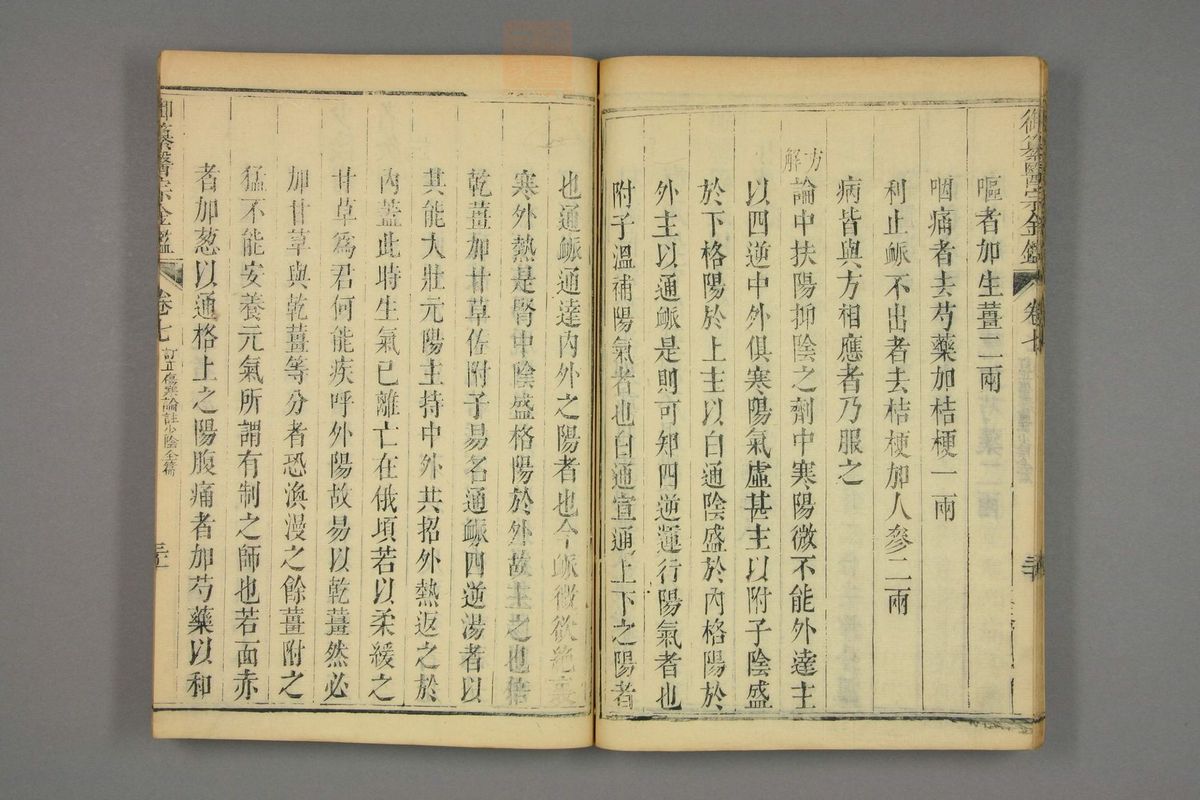 御纂醫宗金鑑
卷七
嘔者加生薑二兩
咽痛者去芍藥加桔梗一兩
利止脈不出者去桔梗加人參二兩
病皆與方相應者乃服之
方解
論中扶陽抑陰之劑中寒陽微不能外達主
以四逆中外俱寒陽氣虛甚主以附子陰盛
於下格陽於上主以白通陰盛於內格陽於
外主以通脈是則可知四逆運行陽氣者也
附子溫補陽氣者也白通宣通上下之陽者
也通脈通達內外之陽者也今脈微欲絕裏
寒外熱是腎中陰盛格陽於外故主之也倍
乾薑加甘草佐附子易名通脈四逆湯者以
其能大壯元陽主持中外共招外熱返之於
內蓋此時生氣已離亡在俄頃若以柔緩之
甘草為君何能疾呼外陽故易以乾薑然必
加甘草與乾薑等分者恐渙漫之餘薑附之
猛不能安養元氣所謂有制之師也若面赤
者加葱以通格上之陽腹痛者加芍藥以和
御纂醫宗金鑑
卷七
訂正傷寒論註少陰全篇